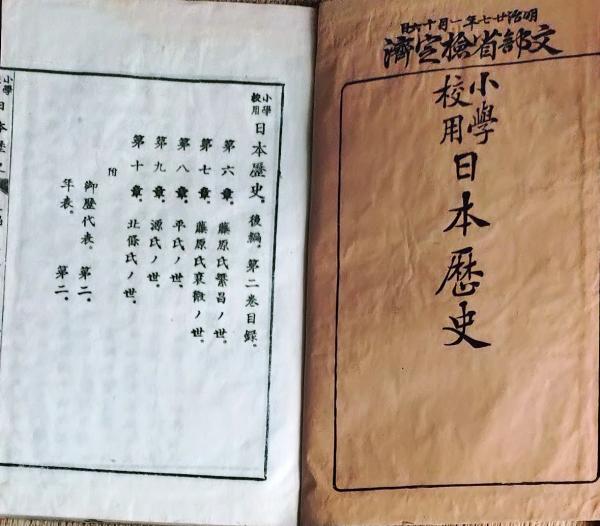 明治廿七年一月十六日
文部省檢定濟
小學校用日本歷史
小學校用 日本歷史。後編。第二卷目錄。
第六章。 藤原氏繁昌ノ世。
第七章。 藤原氏衰微ノ世。
第八章。 平氏ノ世。
第九章。 源氏ノ世。
第十章。 北條氏ノ世。
附
御歷代表。 第二。
年表。 第二。
日本歷史